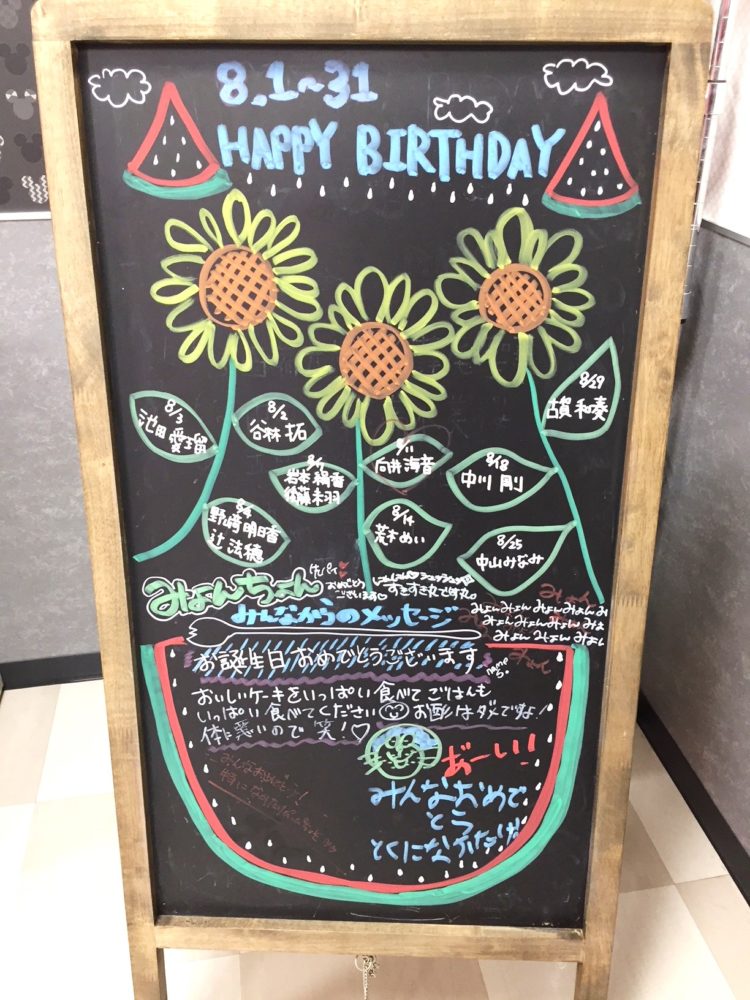 8.1~31
HAPPY BIRTHDAY
8/3
池田 愛瑠
8/2
谷林 拓
8/4
野崎 明日香
辻 法徳
岩本 絹香
後藤 未羽
8/11
向井 海音
8/14
荒木 めい
8/18
中川 剛
8/25
中山 みなみ
8/29
古賀 和奏
みょんちょん
おめでとう
ございます
すきすき丸ですね。
みんなからのメッセージ
みょんみょん みょんみょんみ
みょんみょんみょんみょ
みょんみょんみょん
お誕生日おめでとうございます
おいしいケーキをいっぱい食べて ごはんも
いっぱい食べてください お酒はダメですよ!
体に悪いので 笑!♡
あーい!!
みんなおめで
とう